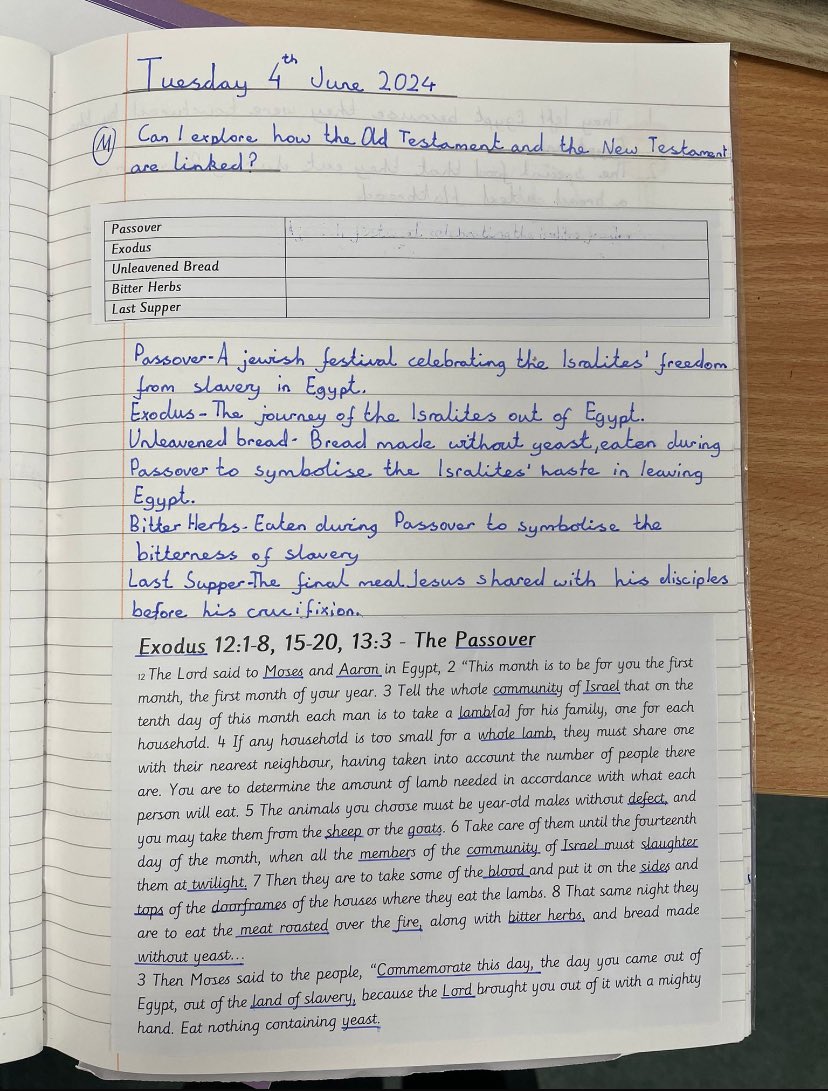 Tuesday 4th June 2024
M Can I explore how the Old Testament and the New Testament
are linked?
Passover
Exodus
Unleavened Bread
Bitter Herbs
Last Supper
Passover-A jewish festival celebrating the Isralites' freedom
from slavery in Egypt.
Exodus-The journey of the Isralites out of Egypt.
Unleavened bread- Bread made without yeast, eaten during
Passover to symbolise the Isralites' haste in leaving
Egypt.
Bitter Herbs-Eaten during Passover to symbolise the
bitterness of slavery
Last Supper-The final meal Jesus shared with his disciples
before his crucifixion.
Exodus 12:1-8, 15-20, 13:3 - The Passover
12 The Lord said to Moses and Aaron in Egypt, 2 "This month is to be for you the first
month, the first month of your year. 3 Tell the whole community of Israel that on the
tenth day of this month each man is to take a lamb[a] for his family, one for each
household. 4 If any household is too small for a whole lamb, they must share one
with their nearest neighbour, having taken into account the number of people there
are. You are to determine the amount of lamb needed in accordance with what each
person will eat. 5 The animals you choose must be year-old males without defect, and
you may take them from the sheep or the goats. 6 Take care of them until the fourteenth
day of the month, when all the members of the community of Israel must slaughter
them at twilight. 7 Then they are to take some of the blood and put it on the sides and
tops of the doorframes of the houses where they eat the lambs. 8 That same night they
are to eat the meat roasted over the fire, along with bitter herbs, and bread made
without yeast...
3 Then Moses said to the people, "Commemorate this day, the day you came out of
Egypt, out of the land of slavery, because the Lord brought you out of it with a mighty
hand. Eat nothing containing yeast.